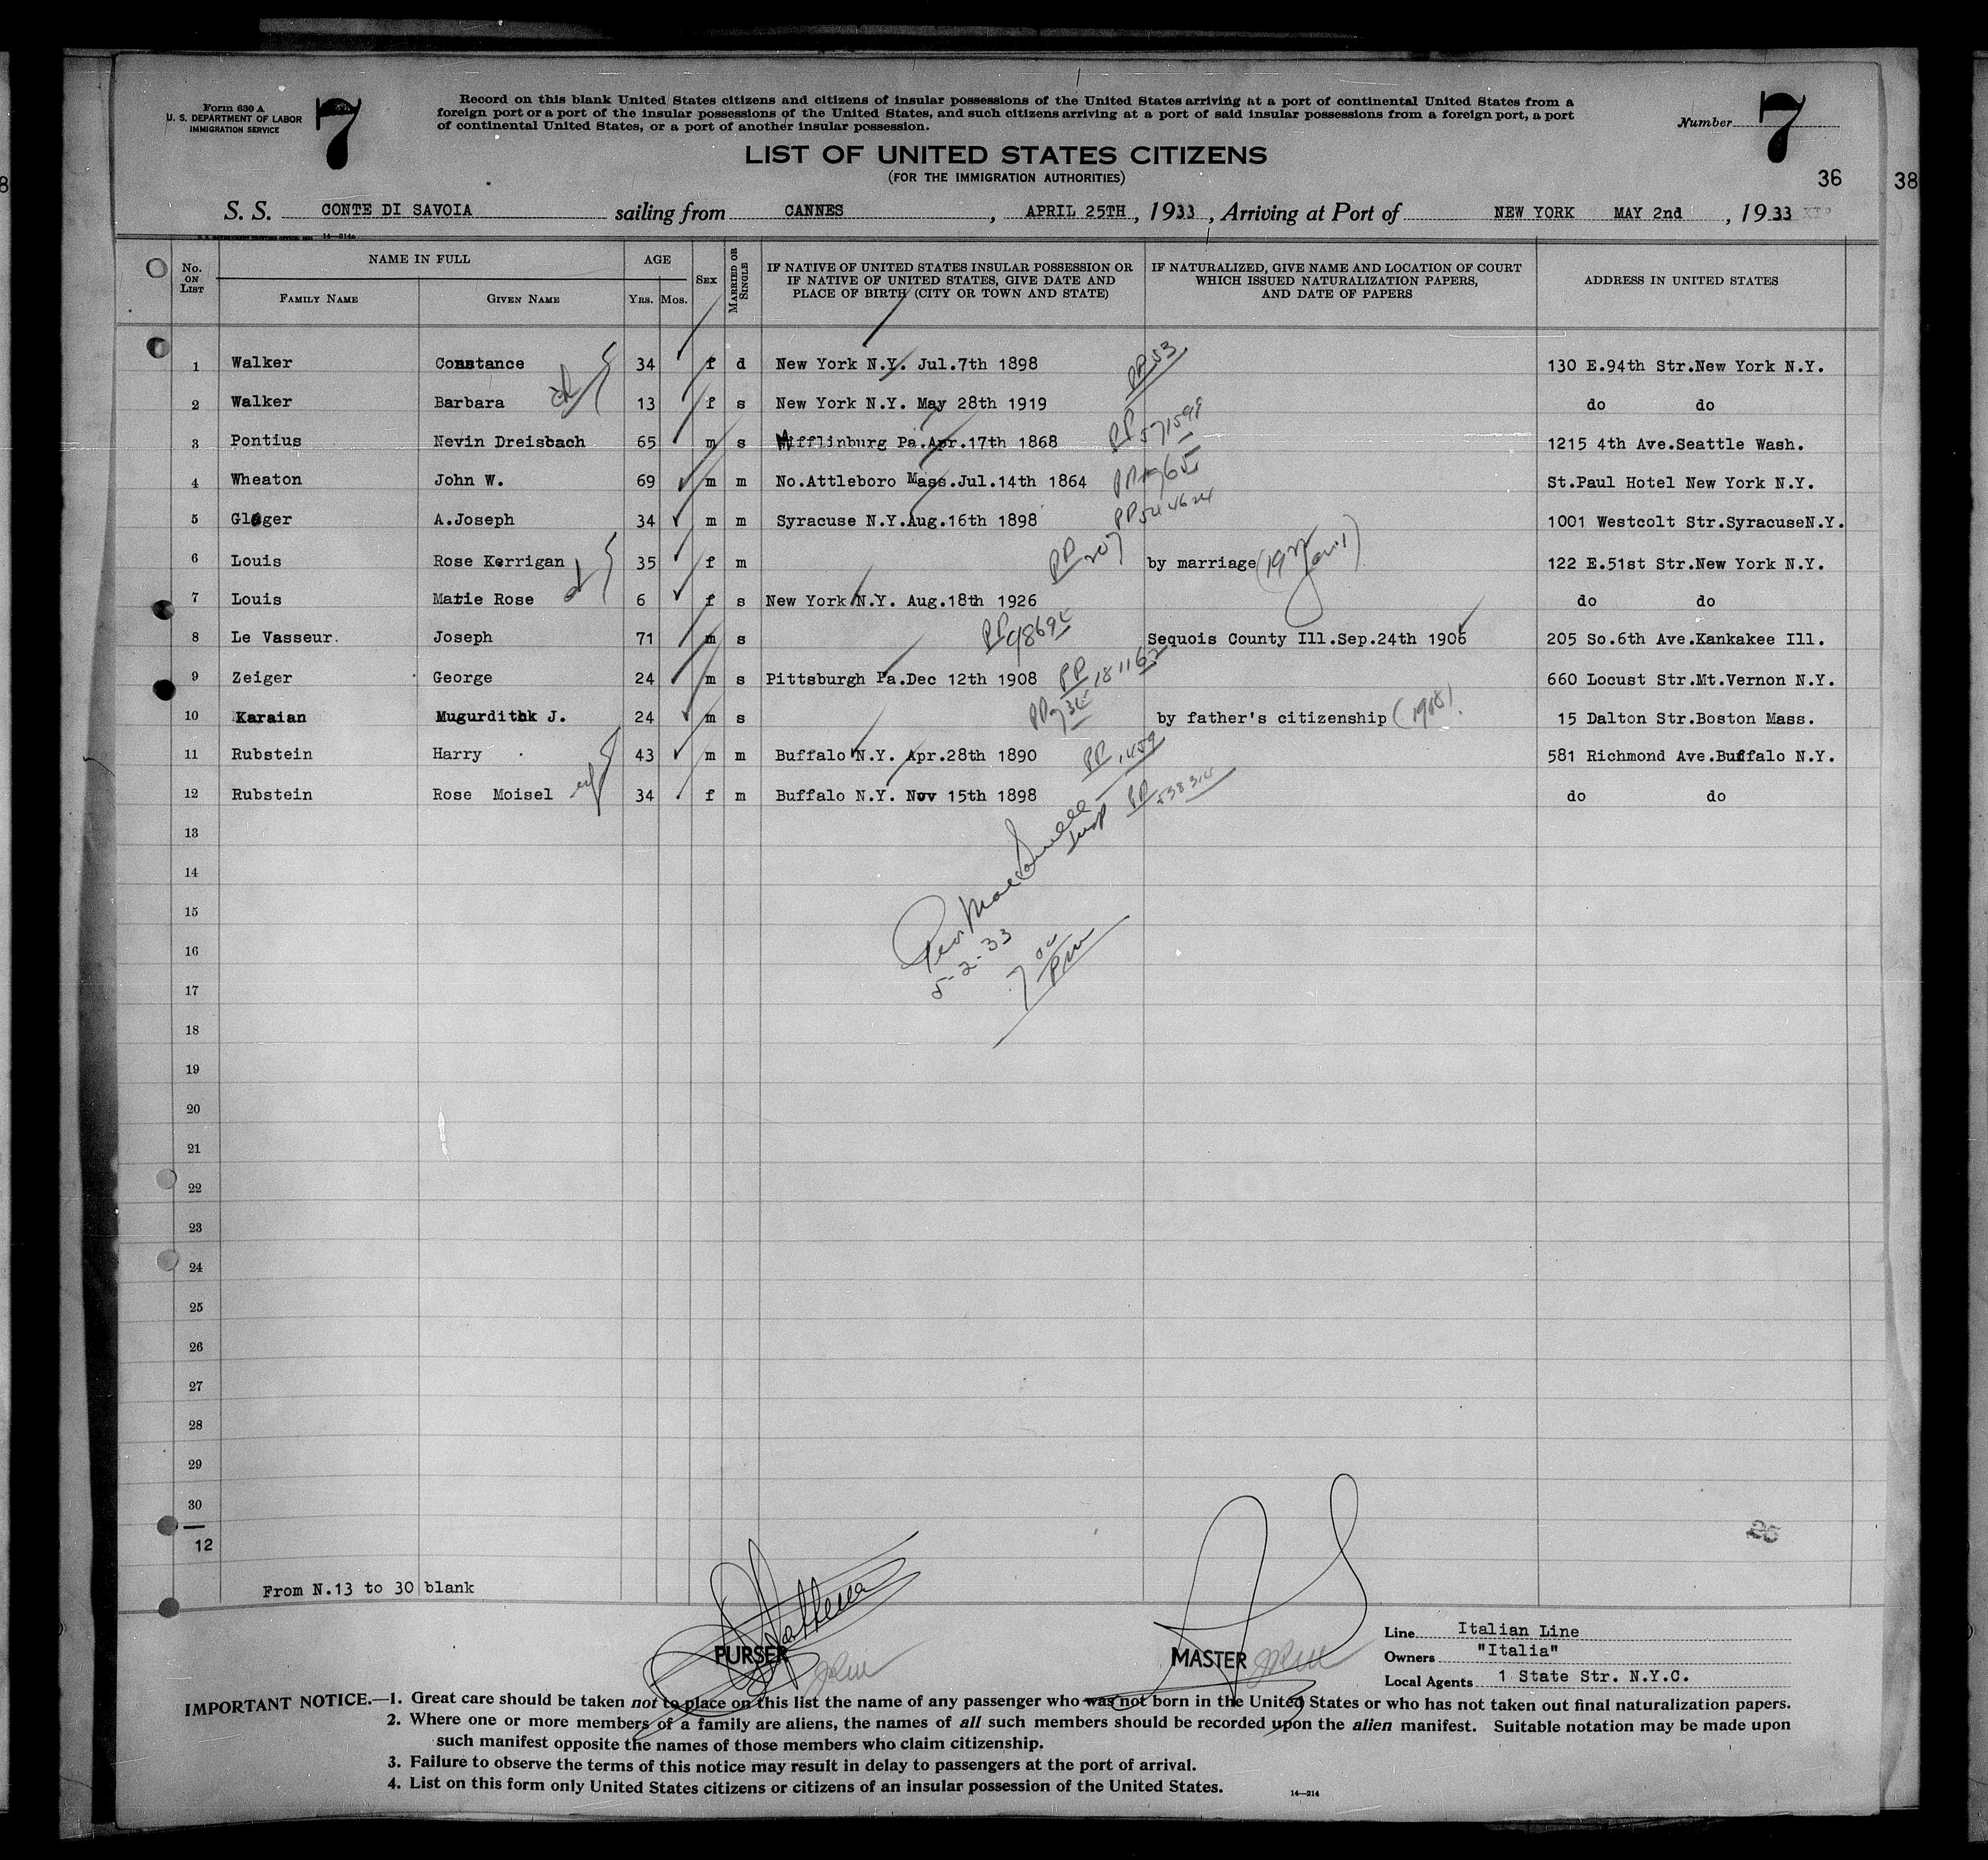 Form 630 A
U. S. DEPARTMENT OF LABOR
IMMIGRATION SERVICE
7
Record on this blank United States citizens and citizens of insular possessions of the United States arriving at a port of continental United States from a
foreign port or a port of the insular possessions of the United States, and such citizens arriving at a port of said insular possessions from a foreign port, a port
of continental United States, or a port of another insular possession.
Number 7
LIST OF UNITED STATES CITIZENS
(FOR THE IMMIGRATION AUTHORITIES)
36
38
S. S. CONTE DI SAVOIA sailing from CANNES, APRIL 25TH, 1933, Arriving at Port of NEW YORK MAY 2nd, 1933
14—214a
No. ON LIST
NAME IN FULL
FAMILY NAME
GIVEN NAME
AGE
YRS. MOS.
SEX
MARRIED OR SINGLE
IF NATIVE OF UNITED STATES INSULAR POSSESSION OR
IF NATIVE OF UNITED STATES, GIVE DATE AND
PLACE OF BIRTH (CITY OR TOWN AND STATE)
IF NATURALIZED, GIVE NAME AND LOCATION OF COURT
WHICH ISSUED NATURALIZATION PAPERS,
AND DATE OF PAPERS
ADDRESS IN UNITED STATES
1 Walker Constance 34 f d New York N.Y. Jul.7th 1898 PP 53 130 E.94th Str.New York N.Y.
2 Walker Barbara 13 f s New York N.Y. May 28th 1919 do do
3 Pontius Nevin Dreisbach 65 m s Mifflinburg Pa.Apr.17th 1868 PP 571598 1215 4th Ave.Seattle Wash.
4 Wheaton John W. 69 m m No.Attleboro Mass.Jul.14th 1864 St.Paul Hotel New York N.Y.
5 A.Joseph 34 m m Syracuse N.Y.Aug.16th 1898 PP 544624 1001 Westcolt Str.SyracuseN.Y.
6 Louis Rose Kerrigan 35 f m PP 207 by marriage 122 E.51st Str.New York N.Y.
7 Louis Marie Rose 6 f s New York N.Y. Aug.18th 1926 do do
8 Le Vasseur. Joseph 71 m s Sequois County Ill.Sep.24th 1906 205 So.6th Ave.Kankakee Ill.
9 Zeiger George 24 m s Pittsburgh Pa.Dec 12th 1908 PP 181162 660 Locust Str.Mt.Vernon N.Y.
10 Karaian Mugurdithk J. 24 m s by father's citizenship (1908) 15 Dalton Str.Boston Mass.
11 Rubstein Harry 43 m m Buffalo N.Y. Apr.28th 1890 PP 1459 581 Richmond Ave.Buffalo N.Y.
12 Rubstein Rose Moisel 34 f m Buffalo N.Y. Nov 15th 1898 PP 538314 do do
13
Insp
14
15
16
5-2-33
17
7 00 PM
18
19
20
21
22
23
24
25
26
27
28
29
30
12
25
From N.13 to 30 blank
PURSER
MASTER
Line Italian Line
Owners "Italia"
Local Agents 1 State Str. N.Y.C.
IMPORTANT NOTICE.—1. Great care should be taken not to place on this list the name of any passenger who was not born in the United States or who has not taken out final naturalization papers.
2. Where one or more members of a family are aliens, the names of all such members should be recorded upon the alien manifest. Suitable notation may be made upon
such manifest opposite the names of those members who claim citizenship.
3. Failure to observe the terms of this notice may result in delay to passengers at the port of arrival.
4. List on this form only United States citizens or citizens of an insular possession of the United States.
14—214